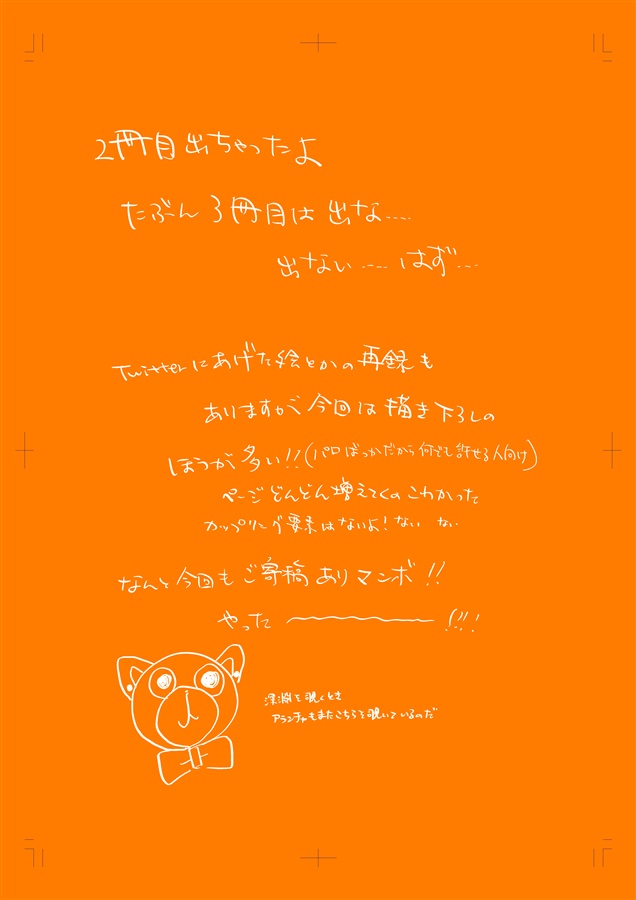 2冊目出ちゃったよ
たぶん3冊目は出な....
出ない....はず...
Twitterにあげた絵とかの再録も
ありますが今回は描き下ろしの
ほうが多い!!(パロばっかだから何でも許せる人向け)
ページどんどん増えてくのこわかった
カップリング要素はないよ!ない ない
なんと今回もご寄稿ありマンボ!!
やった〜〜〜〜〜!!!!
深淵を覗くとき
アランチャもまたこちらを覗いているのだ